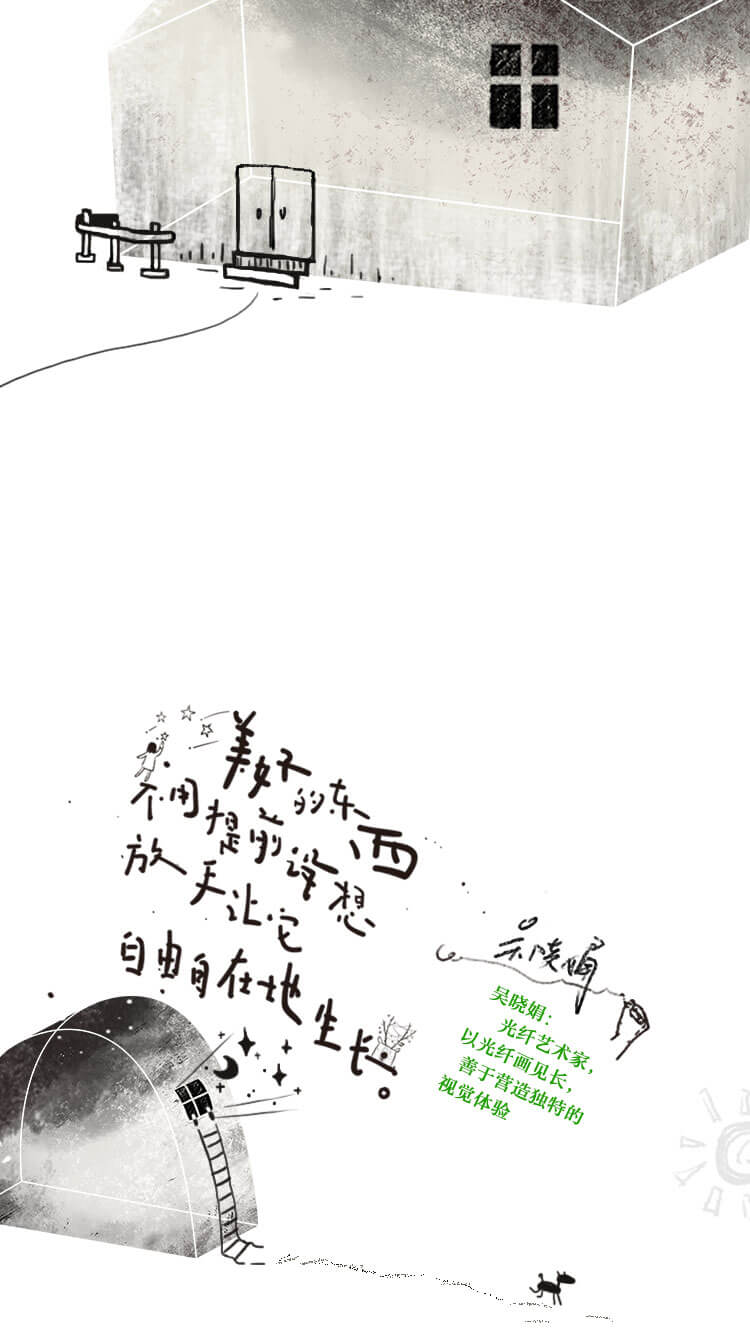 美好的东西
不用提前设想
放手让它
自由自在地生长。
吴晓娟
吴晓娟：
光纤艺术家，
以光纤画见长，
善于营造独特的
视觉体验